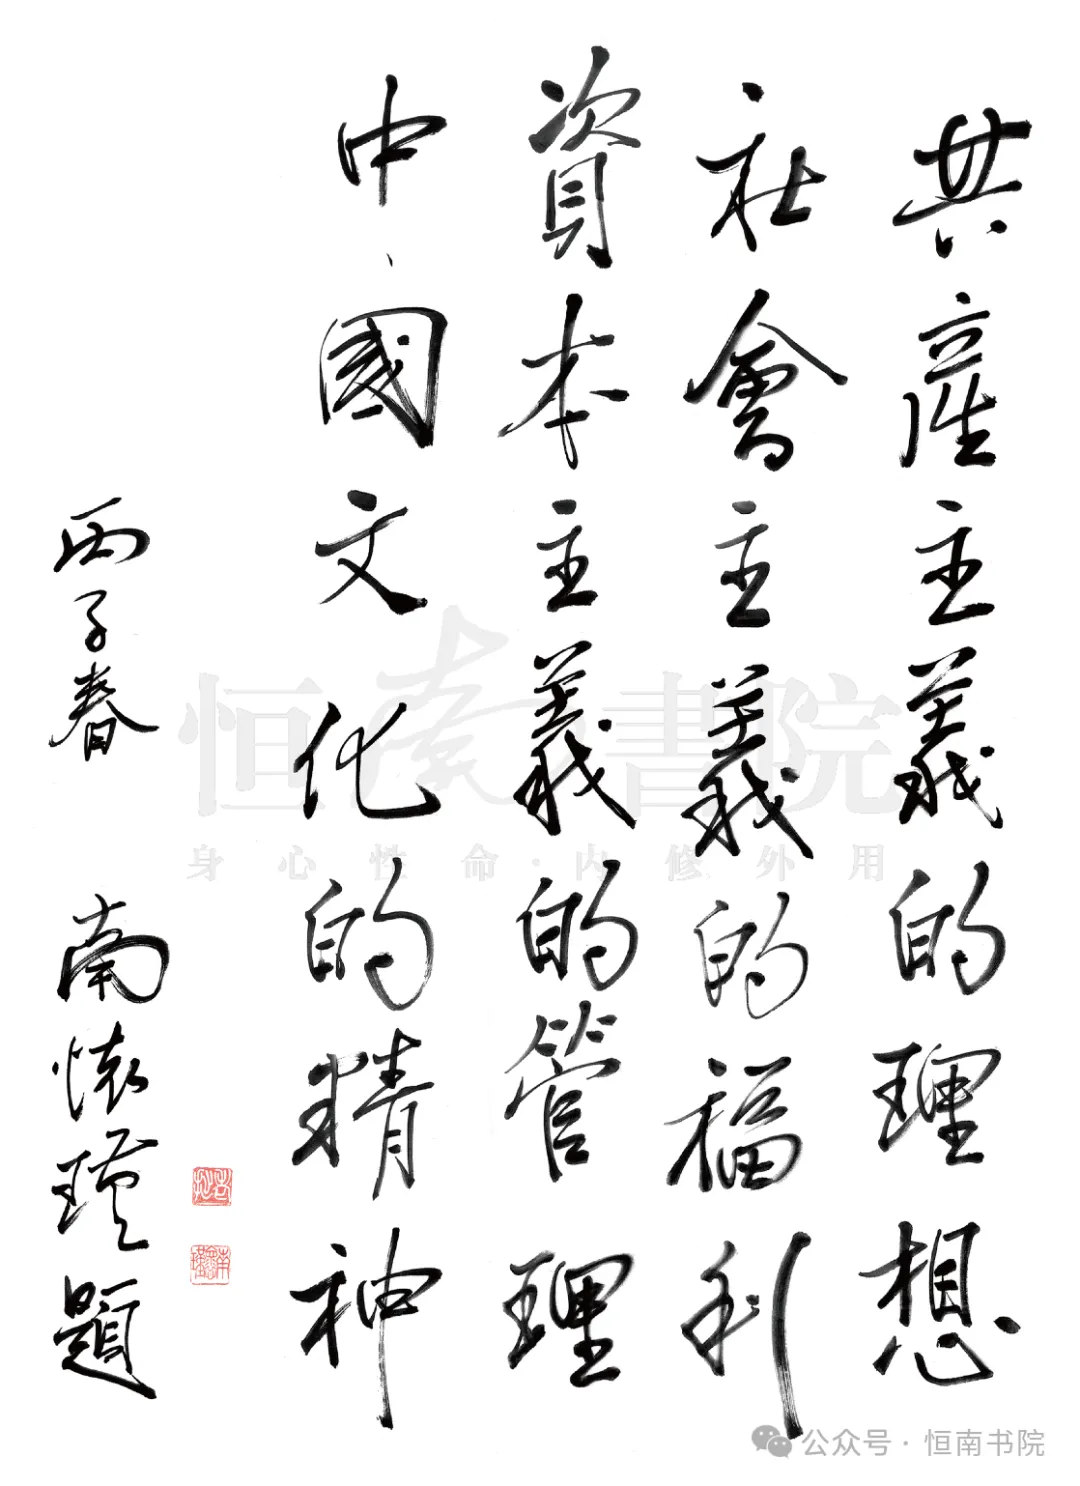 共產主義的理想
社會主義的福利
資本主義的管理
中國文化的精神
丙子春 南懷瑾題
恒南書院
身心性命·内修外用
公众号·恒南书院